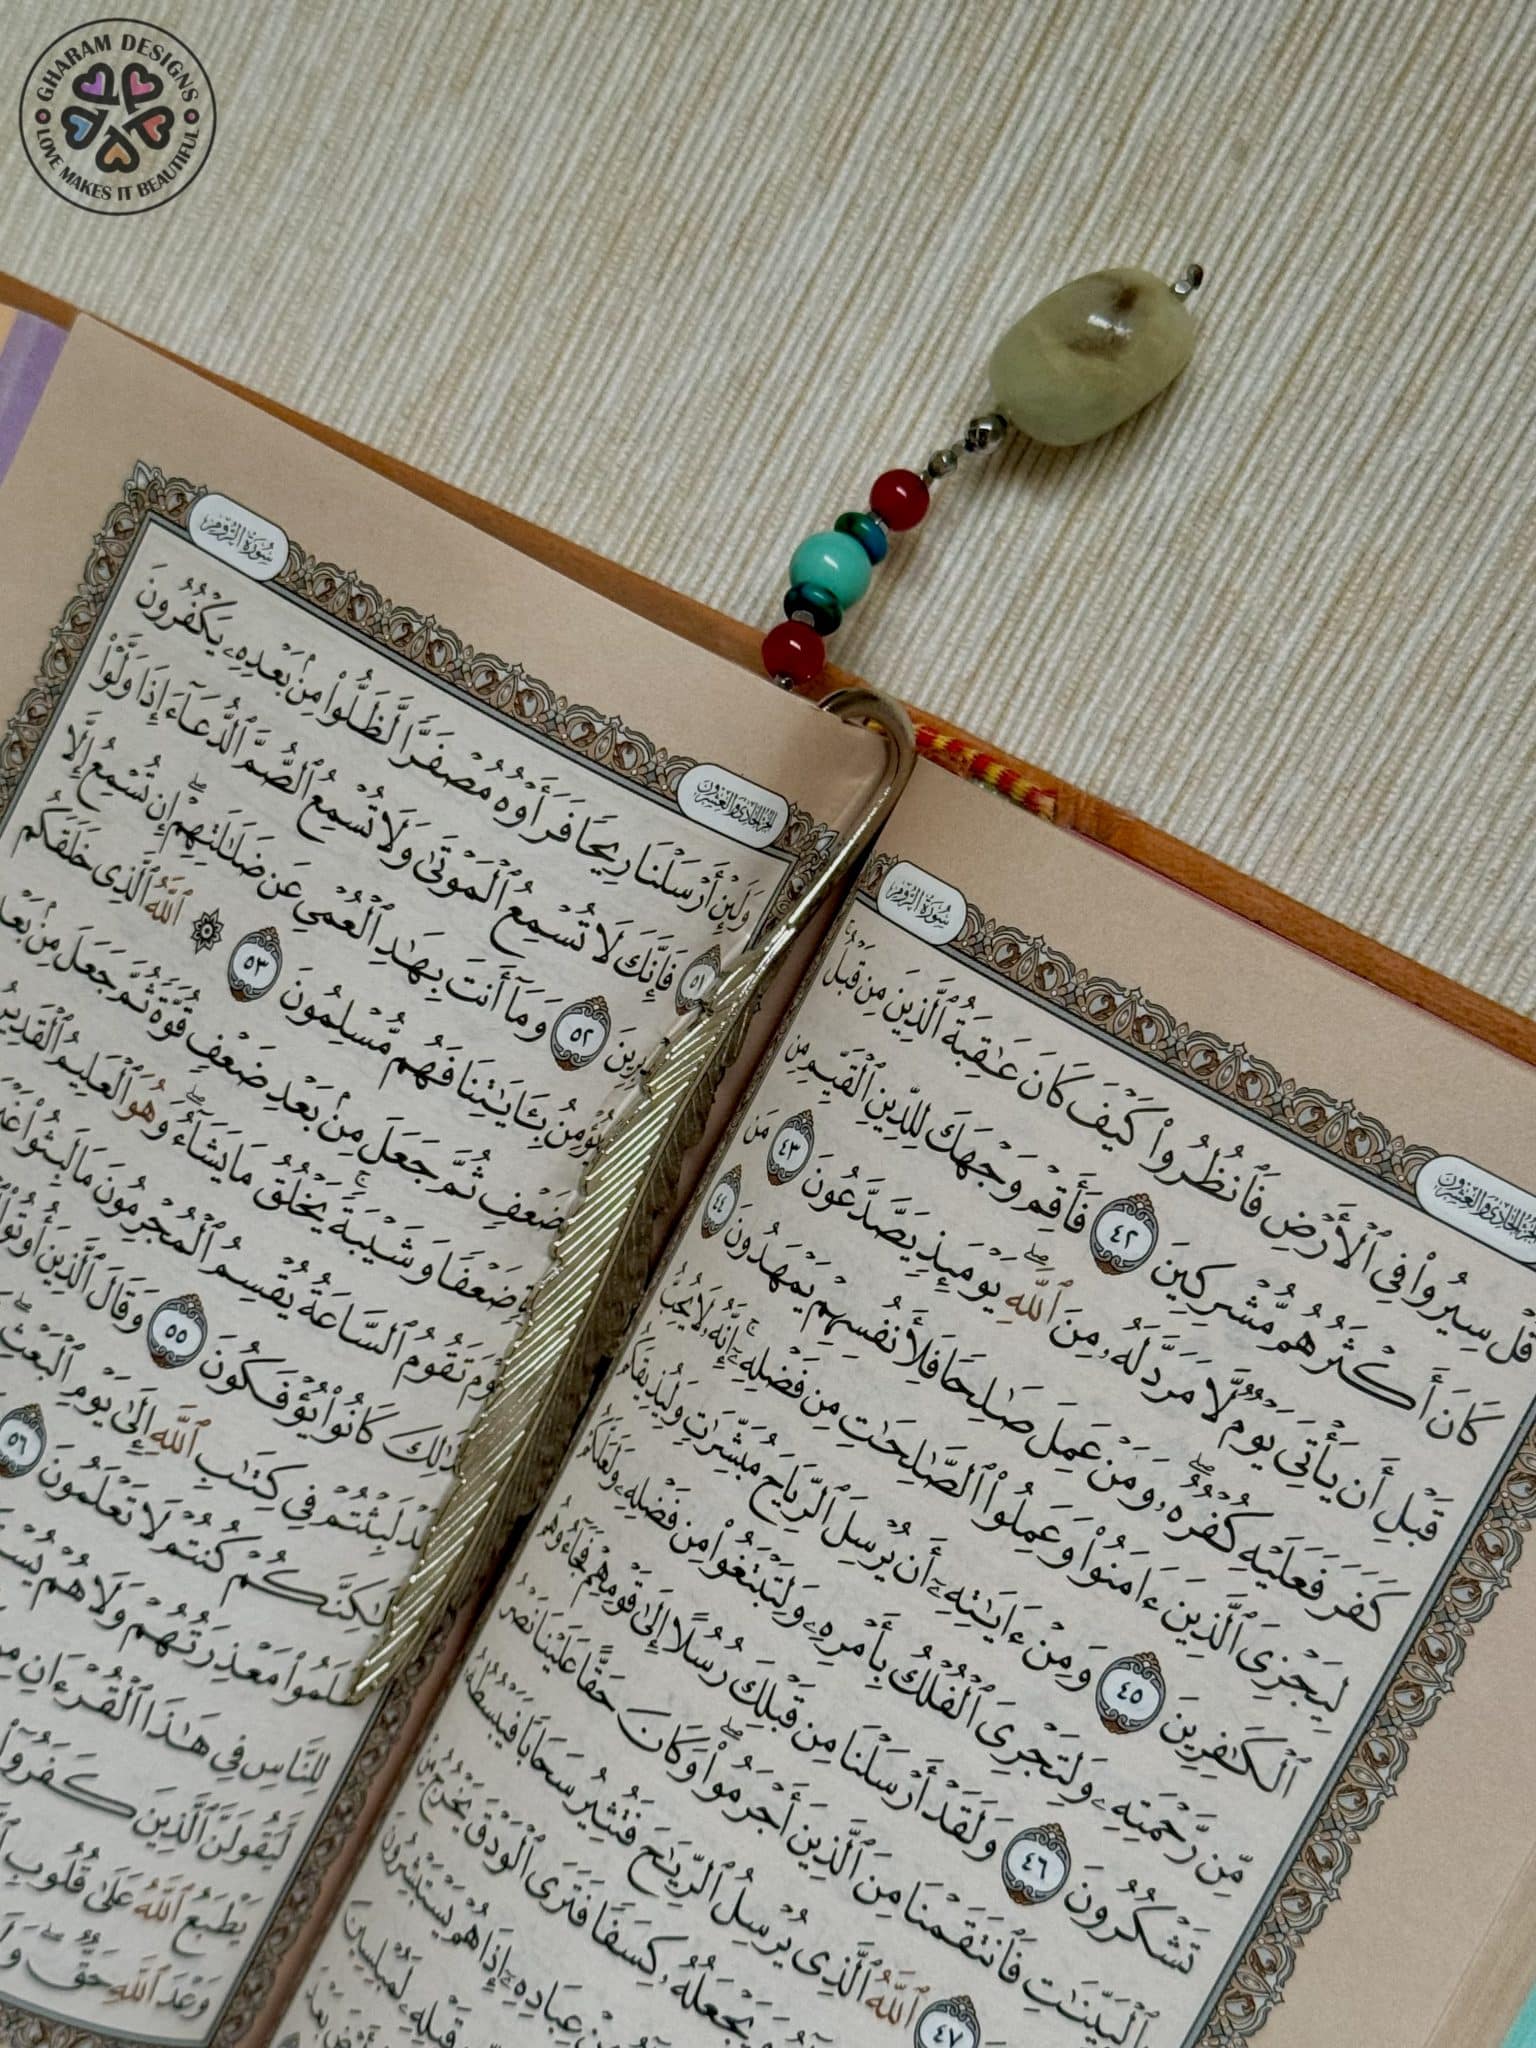 GHARAM DESIGNS
LOVE MAKES IT BEAUTIFUL
سُورَةُ الرُّومِ
الجزء الحادي والعشرون
قُلْ سِيرُوا۟ فِى ٱلْأَرْضِ فَٱنظُرُوا۟ كَيْفَ كَانَ عَـٰقِبَةُ ٱلَّذِينَ مِن قَبْلُ
كَانَ أَكْثَرُهُم مُّشْرِكِينَ ٤٢ فَأَقِمْ وَجْهَكَ لِلدِّينِ ٱلْقَيِّمِ مِن
قَبْلِ أَن يَأْتِىَ يَوْمٌ لَّا مَرَدَّ لَهُۥ مِنَ ٱللَّهِ يَوْمَئِذٍ يَصَّدَّعُونَ ٤٣ مَن
كَفَرَ فَعَلَيْهِ كُفْرُهُۥ وَمَنْ عَمِلَ صَـٰلِحًا فَلِأَنفُسِهِمْ يَمْهَدُونَ ٤٤
لِيَجْزِىَ ٱلَّذِينَ ءَامَنُوا۟ وَعَمِلُوا۟ ٱلصَّـٰلِحَـٰتِ مِن فَضْلِهِۦٓ إِنَّهُۥ لَا يُحِبُّ
ٱلْكَـٰفِرِينَ ٤٥ وَمِنْ ءَايَـٰتِهِۦٓ أَن يُرْسِلَ ٱلرِّيَاحَ مُبَشِّرَٰتٍ وَلِيُذِيقَكُم
مِّن رَّحْمَتِهِۦ وَلِتَجْرِىَ ٱلْفُلْكُ بِأَمْرِهِۦ وَلِتَبْتَغُوا۟ مِن فَضْلِهِۦ وَلَعَلَّكُمْ
تَشْكُرُونَ ٤٦ وَلَقَدْ أَرْسَلْنَا مِن قَبْلِكَ رُسُلًا إِلَىٰ قَوْمِهِمْ فَجَآءُوهُم
بِٱلْبَيِّنَـٰتِ فَٱنتَقَمْنَا مِنَ ٱلَّذِينَ أَجْرَمُوا۟ وَكَانَ حَقًّا عَلَيْنَا نَصْرُ
٤٧ ٱللَّهُ ٱلَّذِى يُرْسِلُ ٱلرِّيَـٰحَ فَتُثِيرُ سَحَابًا فَيَبْسُطُهُۥ
وَيَجْعَلُهُۥ كِسَفًا فَتَرَى ٱلْوَدْقَ يَخْرُجُ مِنْ
مِنْ عِبَادِهِۦٓ إِذَا هُمْ يَسْتَبْشِرُونَ
قَبْلِهِۦ لَمُبْلِسِينَ
الجزء الحادي والعشرون
سُورَةُ الرُّومِ
وَلَئِنْ أَرْسَلْنَا رِيحًا فَرَأَوْهُ مُصْفَرًّا لَّظَلُّوا۟ مِنۢ بَعْدِهِۦ يَكْفُرُونَ
٥١ فَإِنَّكَ لَا تُسْمِعُ ٱلْمَوْتَىٰ وَلَا تُسْمِعُ ٱلصُّمَّ ٱلدُّعَآءَ إِذَا وَلَّوْا۟
٥٢ وَمَآ أَنتَ بِهَـٰدِ ٱلْعُمْىِ عَن ضَلَـٰلَتِهِمْ إِن تُسْمِعُ إِلَّا
يُؤْمِنُ بِـَٔايَـٰتِنَا فَهُم مُّسْلِمُونَ ٥٣ ٱللَّهُ ٱلَّذِى خَلَقَكُم
ضَعْفٍ ثُمَّ جَعَلَ مِنۢ بَعْدِ ضَعْفٍ قُوَّةً ثُمَّ جَعَلَ مِنۢ
ضَعْفًا وَشَيْبَةً يَخْلُقُ مَا يَشَآءُ وَهُوَ ٱلْعَلِيمُ ٱلْقَدِيرُ
تَقُومُ ٱلسَّاعَةُ يُقْسِمُ ٱلْمُجْرِمُونَ مَا لَبِثُوا۟
كَانُوا۟ يُؤْفَكُونَ ٥٥ وَقَالَ ٱلَّذِينَ أُوتُوا۟
لَبِثْتُمْ فِى كِتَـٰبِ ٱللَّهِ إِلَىٰ يَوْمِ ٱلْبَعْثِ
كُنتُمْ لَا تَعْلَمُونَ ٥٦
مَعْذِرَتُهُمْ وَلَا هُمْ
لِلنَّاسِ فِى هَـٰذَا ٱلْقُرْءَانِ
لَّيَقُولَنَّ ٱلَّذِينَ كَفَرُوٓا۟
يَطْبَعُ ٱللَّهُ عَلَىٰ قُلُوبِ
وَعْدَ ٱللَّهِ حَقٌّ